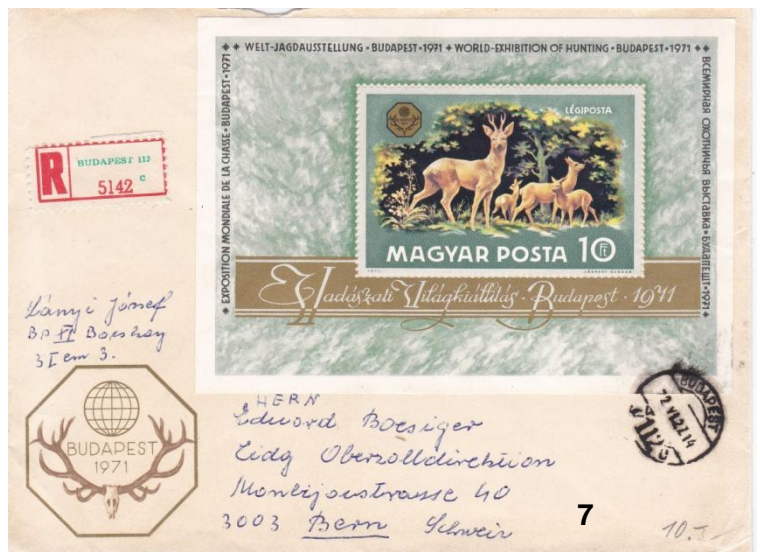 ✦✦ WELT-JAGDAUSSTELLUNG • BUDAPEST • 1971 ✦ WORLD-EXHIBITION OF HUNTING • BUDAPEST • 1971 ✦✦
EXPOSITION MONDIALE DE LA CHASSE • BUDAPEST • 1971
ВСЕМИРНАЯ ОХОТНИЧЬЯ ВЫСТАВКА • БУДАПЕШТ • 1971
LÉGIPOSTA
MAGYAR POSTA 10 Ft
1971
Vadászati Világkiállítás • Budapest • 1971
R BUDAPEST 112
5142 c
Lányi József
BP XI Bocskay
3 I em 3.
BUDAPEST
1971
HERN
Eduard Boesiger
Eidg Oberzolldirektion
Monbijoustrasse 40
3003 Bern Schweiz
BUDAPEST
72 VI. 27. 14
112
7
10.